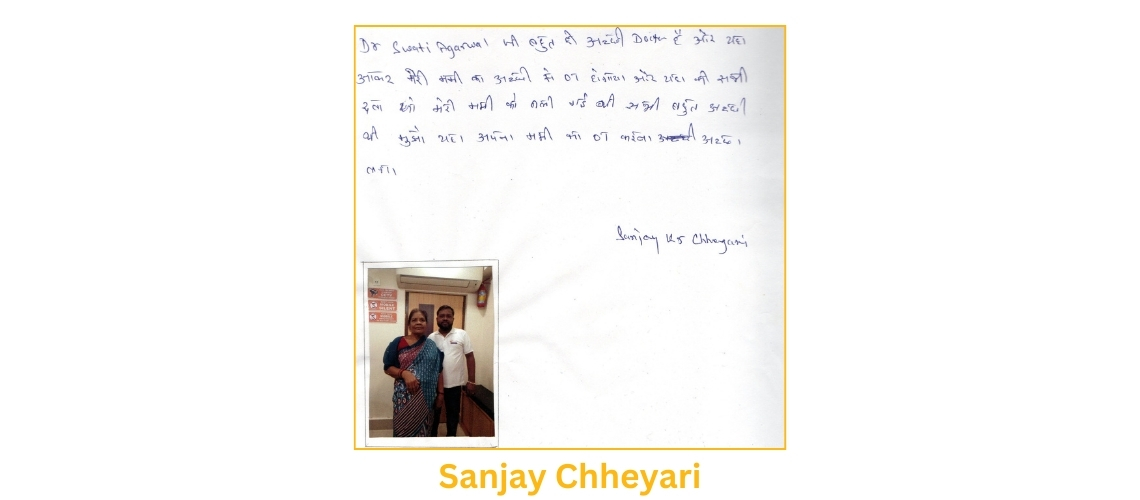 Dr Swati Agarwal जी बहुत ही अच्छी Doctor हैं और यहा
आकर मेरी मम्मी का अच्छी से OT होगया और यहा की सभी
मेरी मम्मी को सभी बहुत अच्छी
थी मुझे यहा अपना मम्मी का OT करना अच्छा
लगा
Sanjay Kr Chheyari
Sanjay Chheyari